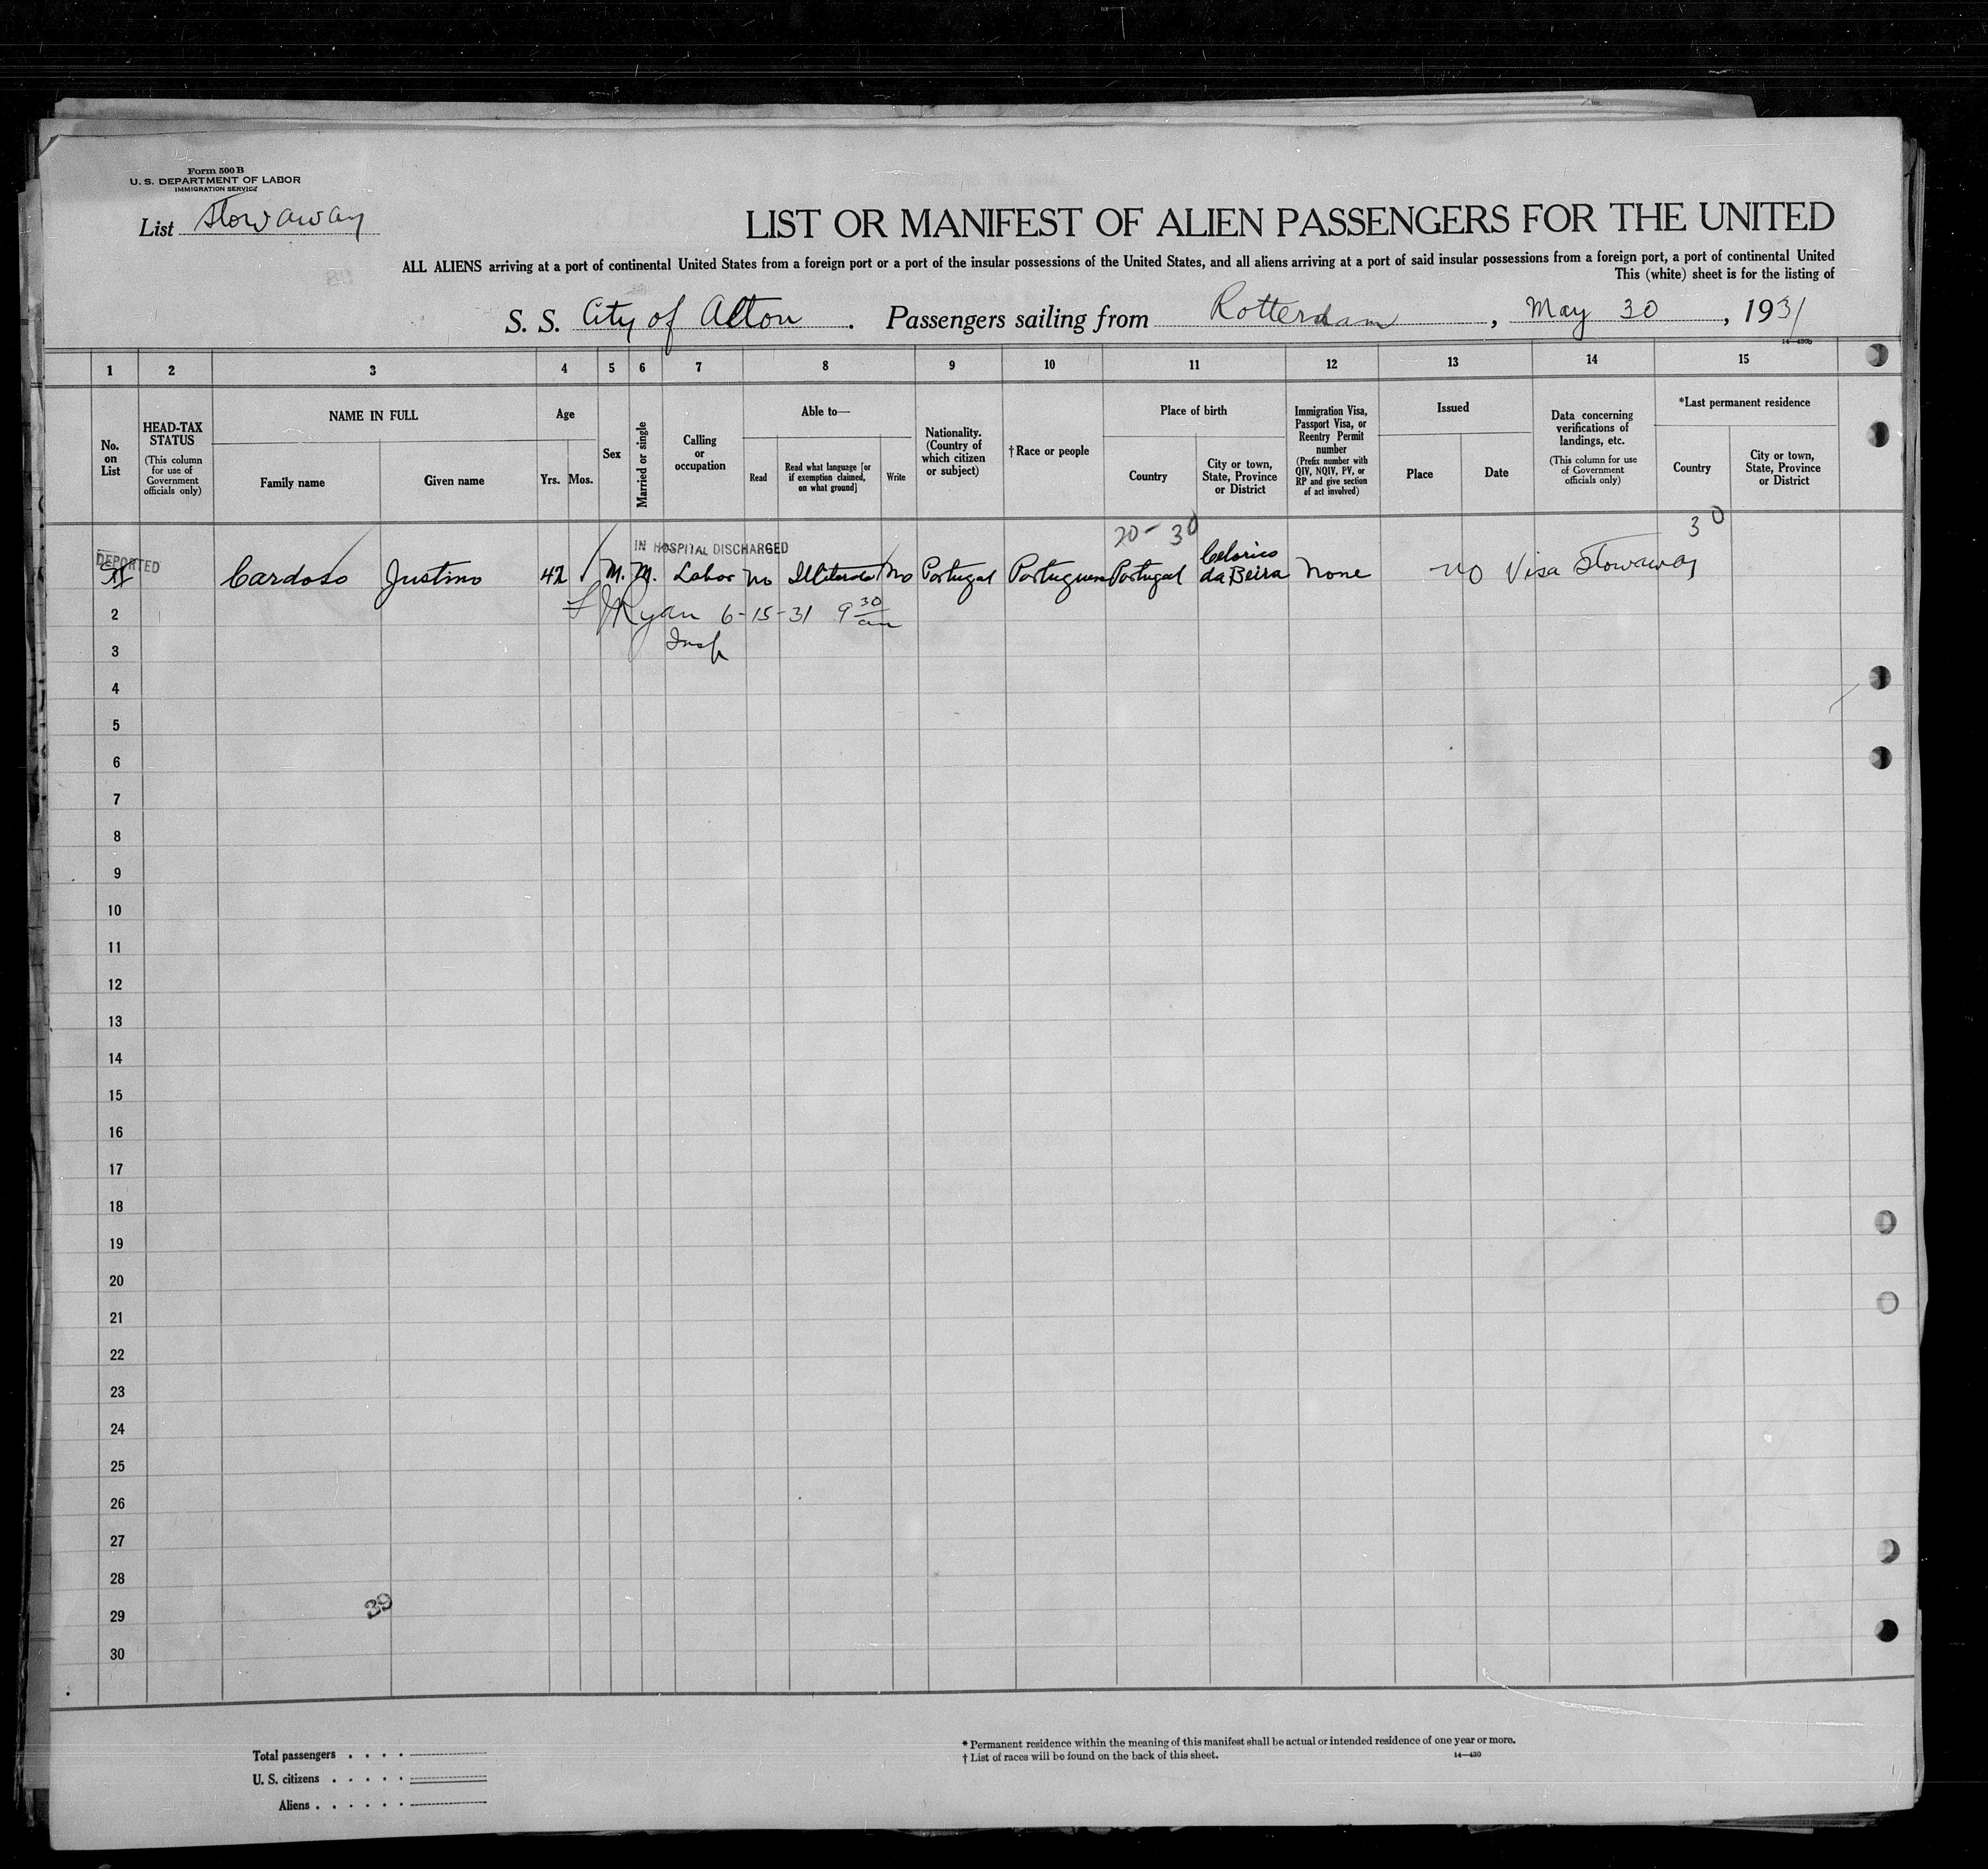 Form 500 B
U. S. DEPARTMENT OF LABOR
IMMIGRATION SERVICE
List Stowaway
LIST OR MANIFEST OF ALIEN PASSENGERS FOR THE UNITED
ALL ALIENS arriving at a port of continental United States from a foreign port or a port of the insular possessions of the United States, and all aliens arriving at a port of said insular possessions from a foreign port, a port of continental United
This (white) sheet is for the listing of
S. S. City of Alton . Passengers sailing from Rotterdam , May 30 , 1931
14—430b
1 2 3 4 5 6 7 8 9 10 11 12 13 14 15
No. on List
HEAD-TAX STATUS
(This column for use of Government officials only)
NAME IN FULL
Family name
Given name
Age
Yrs. Mos.
Sex
Married or single
Calling or occupation
Able to—
Read
Read what language [or if exemption claimed, on what ground]
Write
Nationality. (Country of which citizen or subject)
†Race or people
Place of birth
Country
City or town, State, Province or District
Immigration Visa, Passport Visa, or Reentry Permit number
(Prefix number with QIV, NQIV, PV, or RP and give section of act involved)
Issued
Place
Date
Data concerning verifications of landings, etc.
(This column for use of Government officials only)
*Last permanent residence
Country
City or town, State, Province or District
20 - 30
30
IN HOSPITAL DISCHARGED
DEPORTED
Cardoso Justino 42 M. M. Labor no Illiterate no Portugal Portuguese Portugal Celorico da Beira None No Visa Stowaway
2 Ryan 6-15-31 9 30 am
3 Insp
4
5
6
7
8
9
10
11
12
13
14
15
16
17
18
19
20
21
22
23
24
25
26
27
28
29
30
39
Total passengers . . . .
U. S. citizens . . . . .
Aliens . . . . . .
* Permanent residence within the meaning of this manifest shall be actual or intended residence of one year or more.
† List of races will be found on the back of this sheet.
14—430